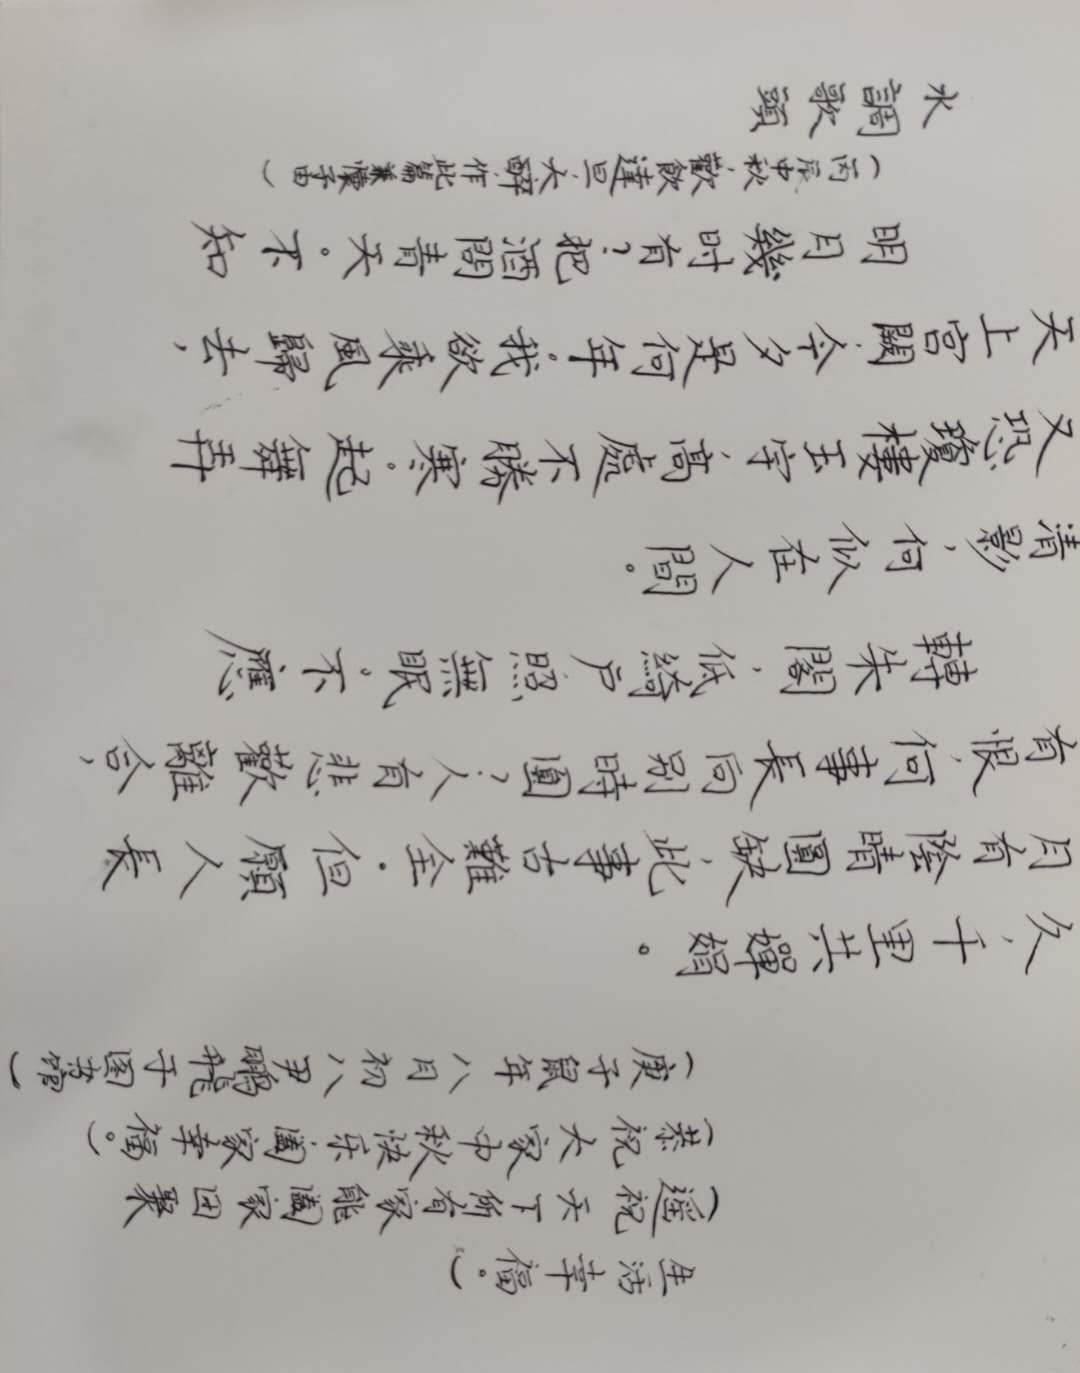 水調歌頭
（丙辰中秋，歡飲達旦，大醉，作此篇，兼懷子由）
明月幾时有？把酒問青天。不知
天上宫闕，今夕是何年。我欲乘風歸去，
又恐瓊樓玉宇，高處不勝寒。起舞弄
清影，何似在人間。
轉朱閣，低綺户，照無眠，不應
有恨，何事長向别時圓？人有悲歡離合，
月有陰晴圓缺，此事古難全。但願人長
久，千里共嬋娟。
（庚子鼠年八月初八尹鵬于图書館）
（恭祝大家中秋快乐闔家幸福。）
（遥祝天下所有家能闔家团聚
生活幸福。）